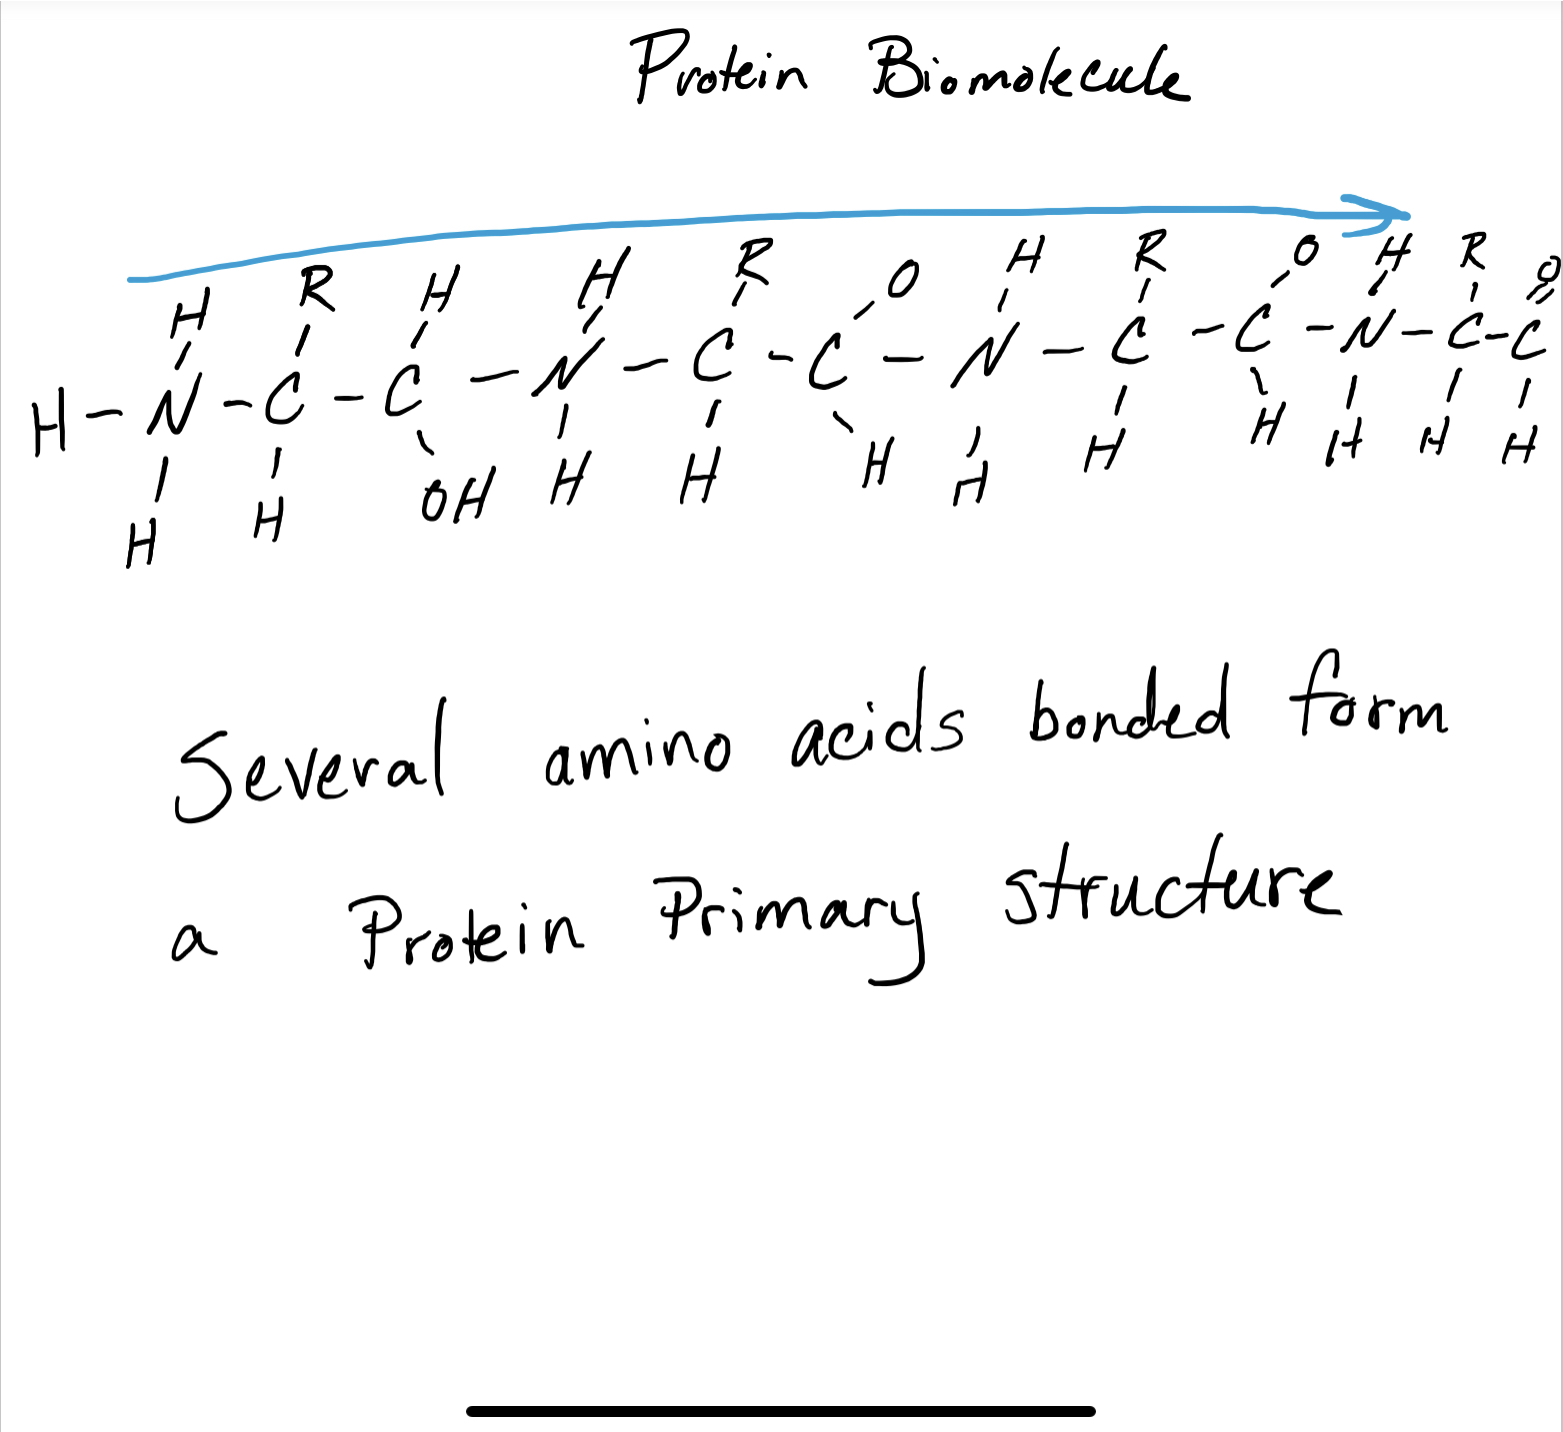 Protein Biomolecule
H R H H R O H R O H R O
H - N - C - C - N - C - C - N - C - C - N - C - C
H H OH H H H H H H H H H
Several amino acids bonded form
a Protein Primary structure